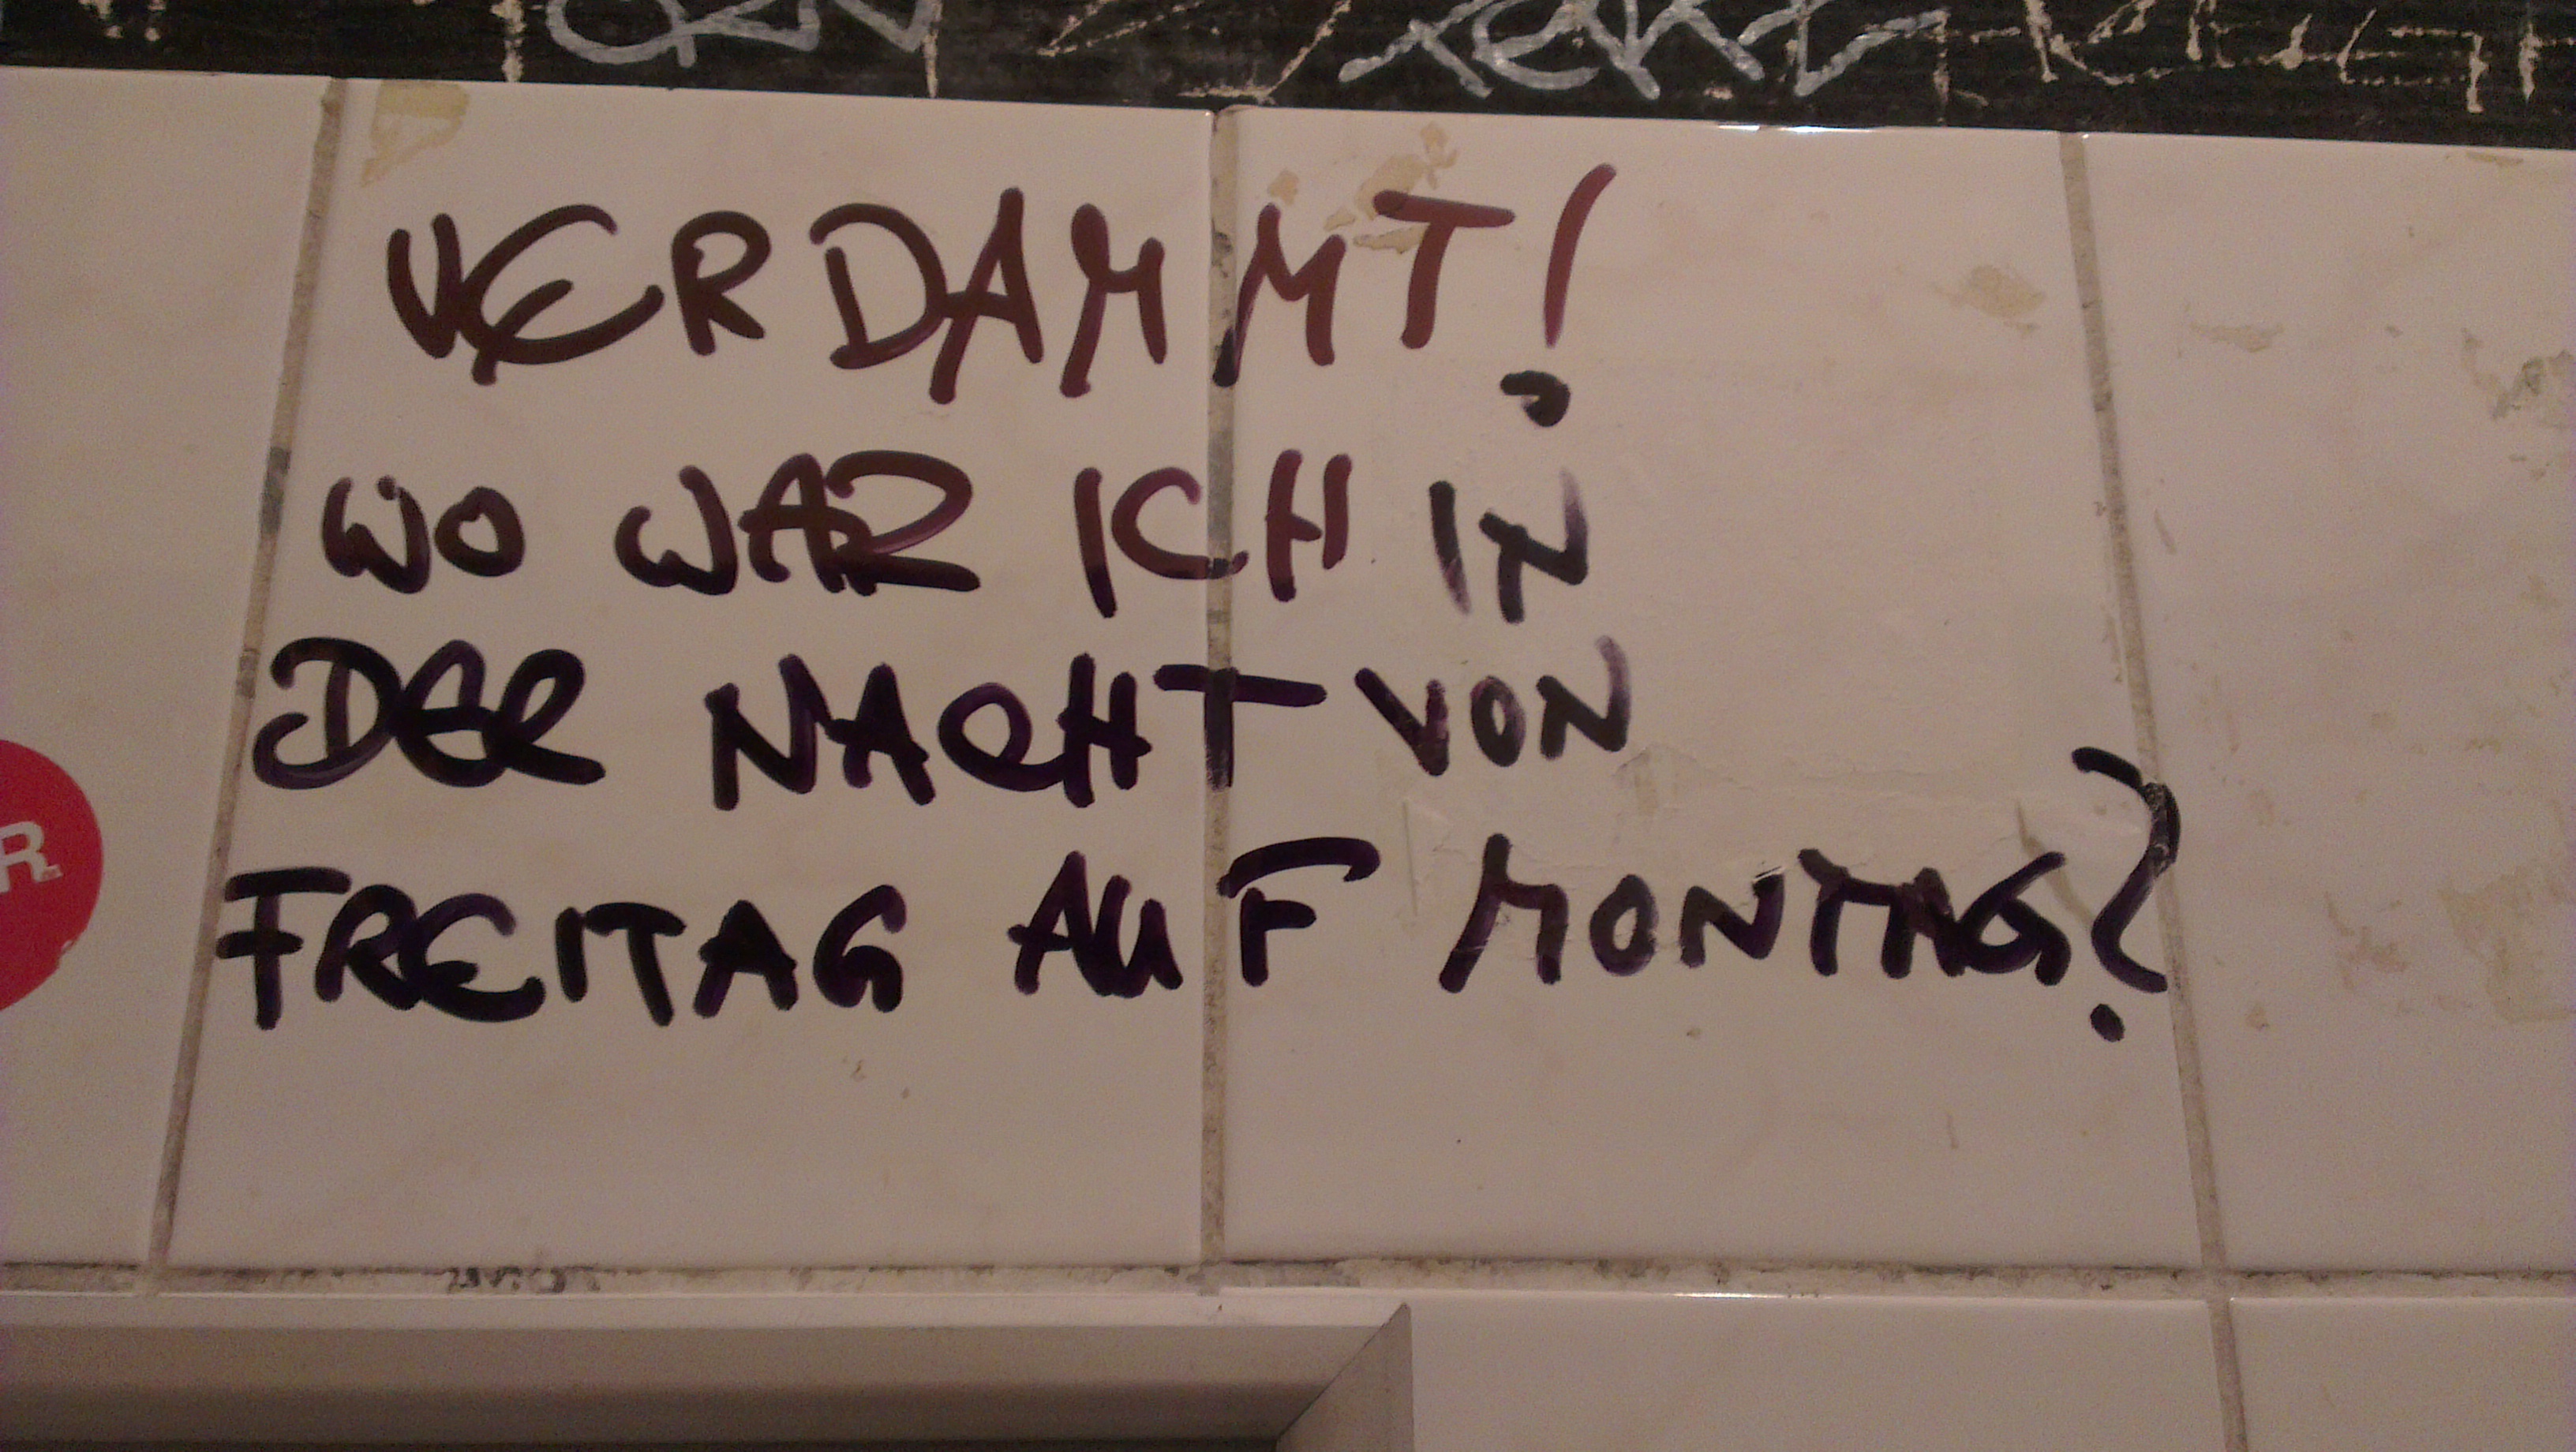 VERDAMMT!
WO WAR ICH IN
DER NACHT VON
FREITAG AUF MONTAG?
R